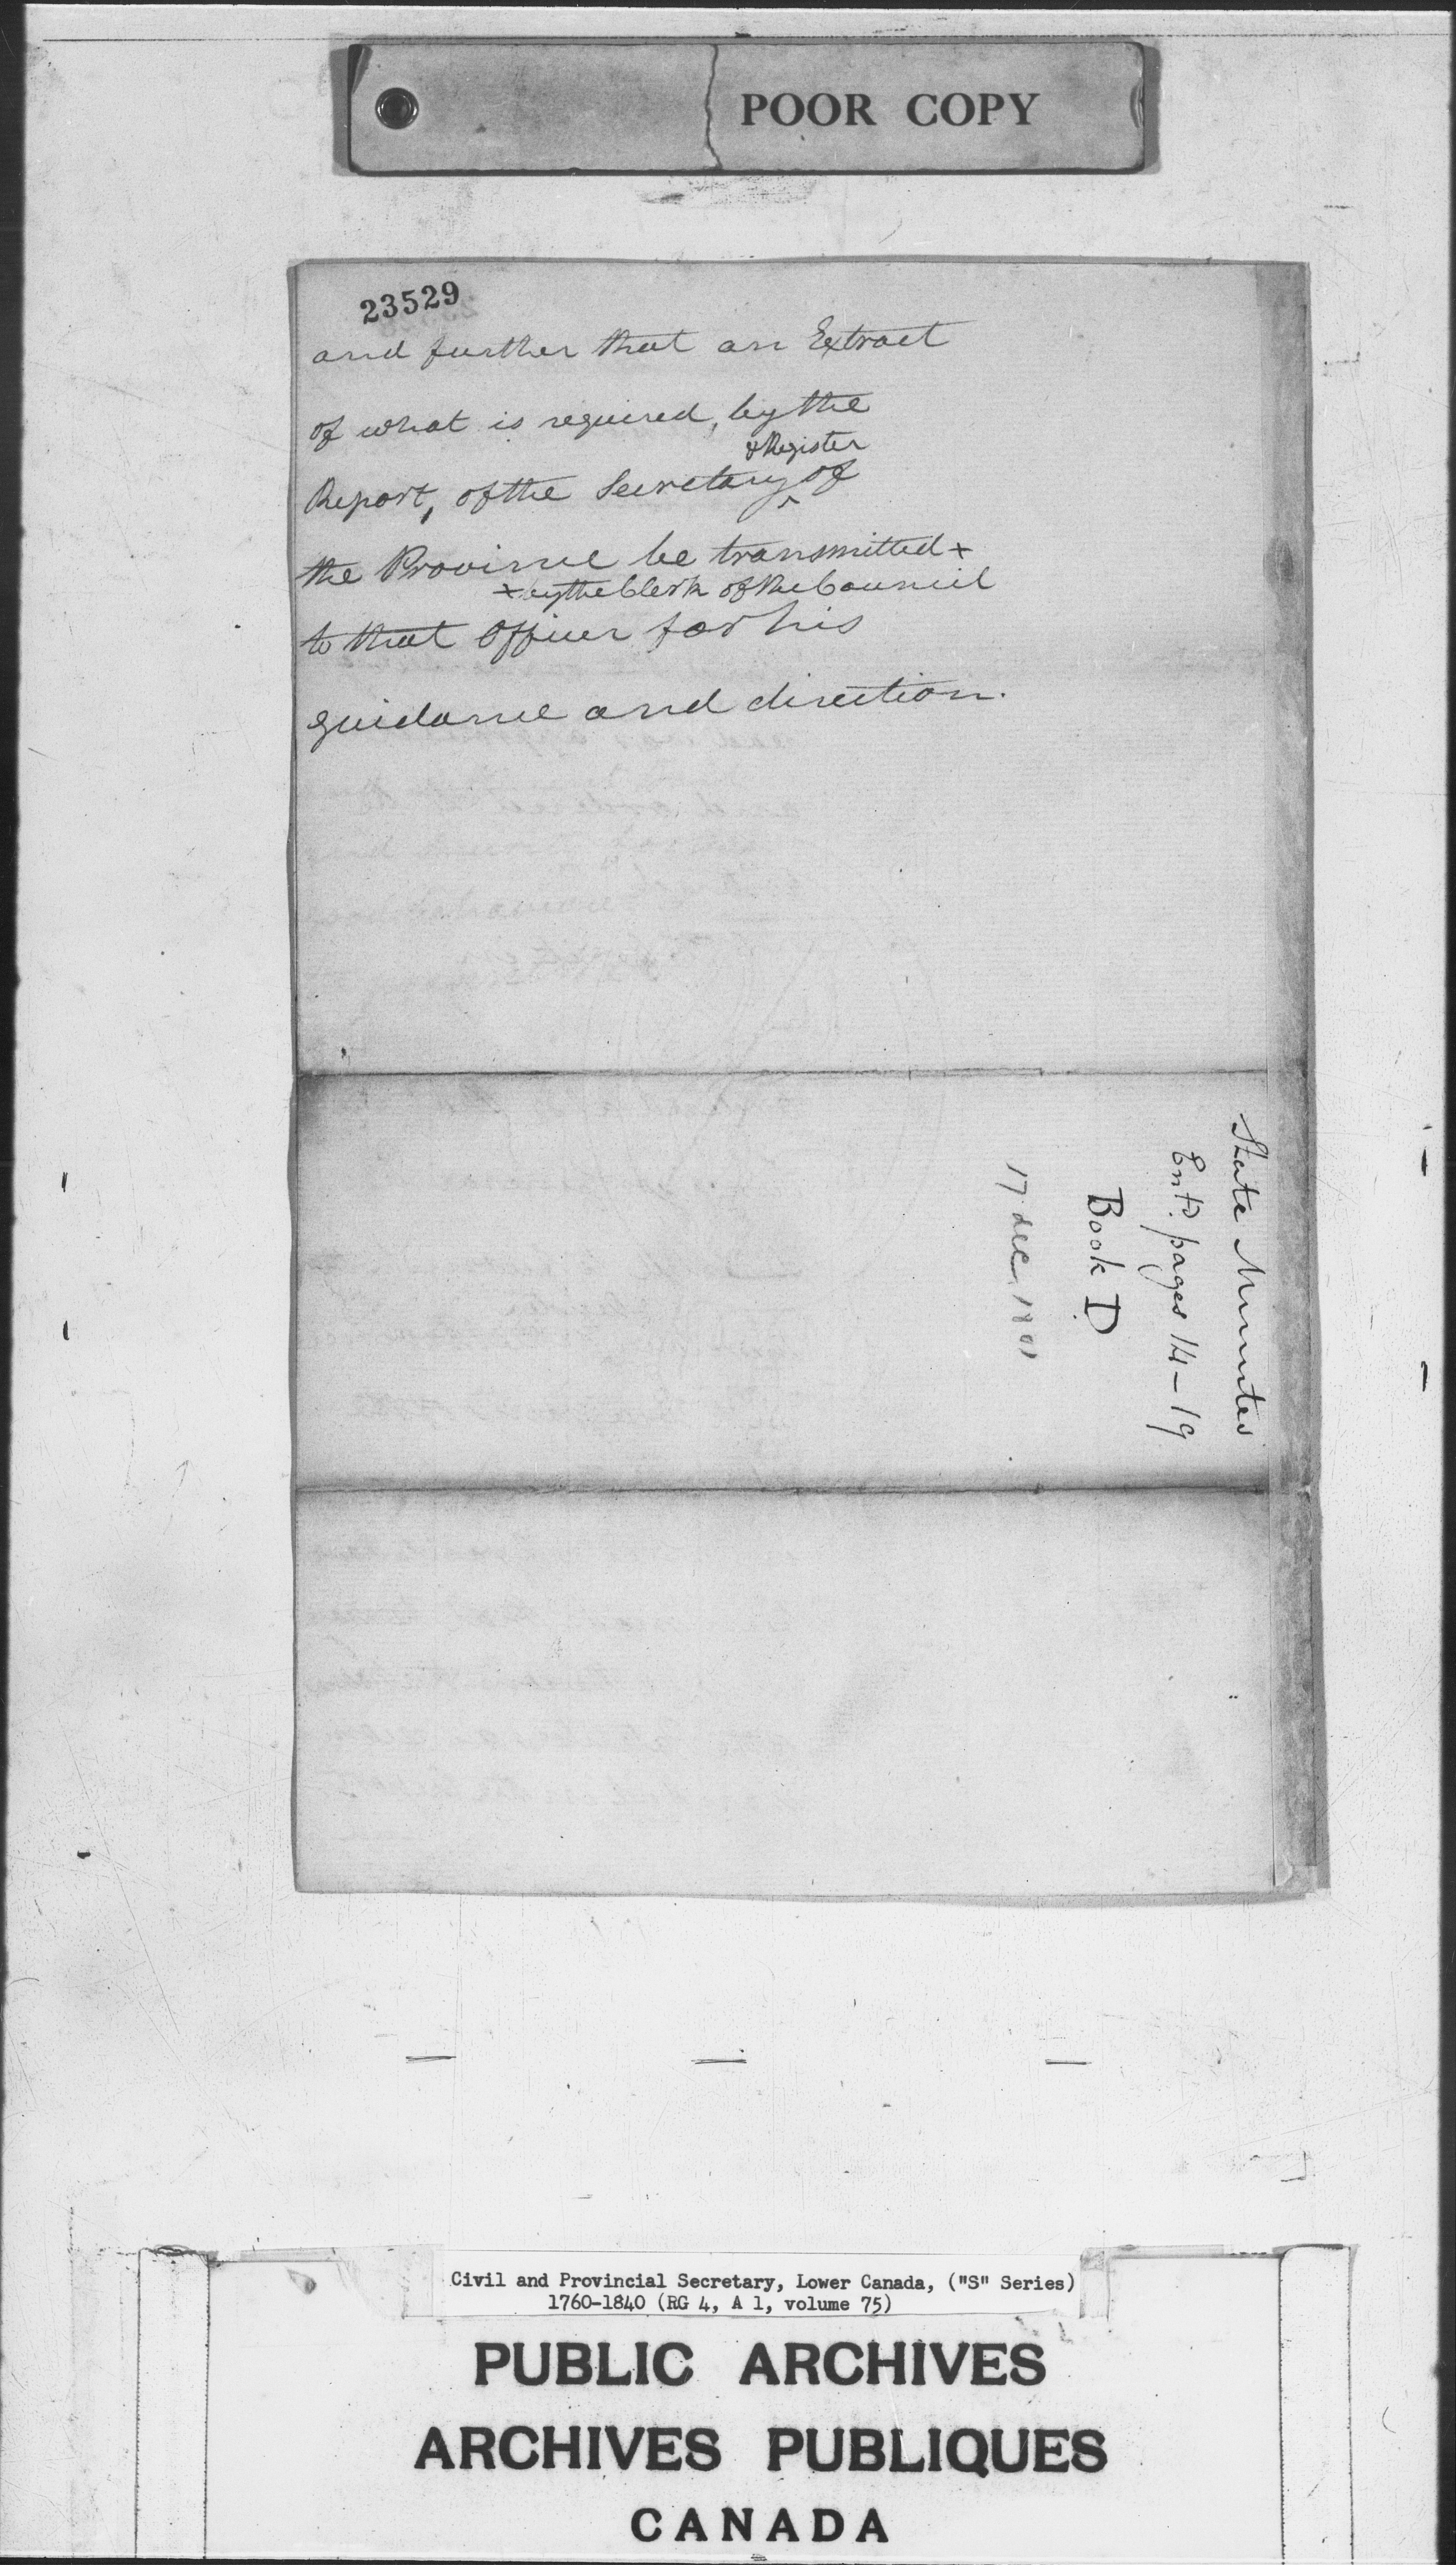 POOR COPY
23529
and further that an Extract
of what is required, by the
& Register
Report, of the Secretary ^ of
the Province be transmitted +
+ by the Clerk of the Council
to that Officer for his
guidance and direction.
State Minutes
Entd. pages 14-19
Book D
17 dec. 1801
Civil and Provincial Secretary, Lower Canada, ("S" Series)
1760-1840 (RG 4, A 1, volume 75)
PUBLIC ARCHIVES
ARCHIVES PUBLIQUES
CANADA